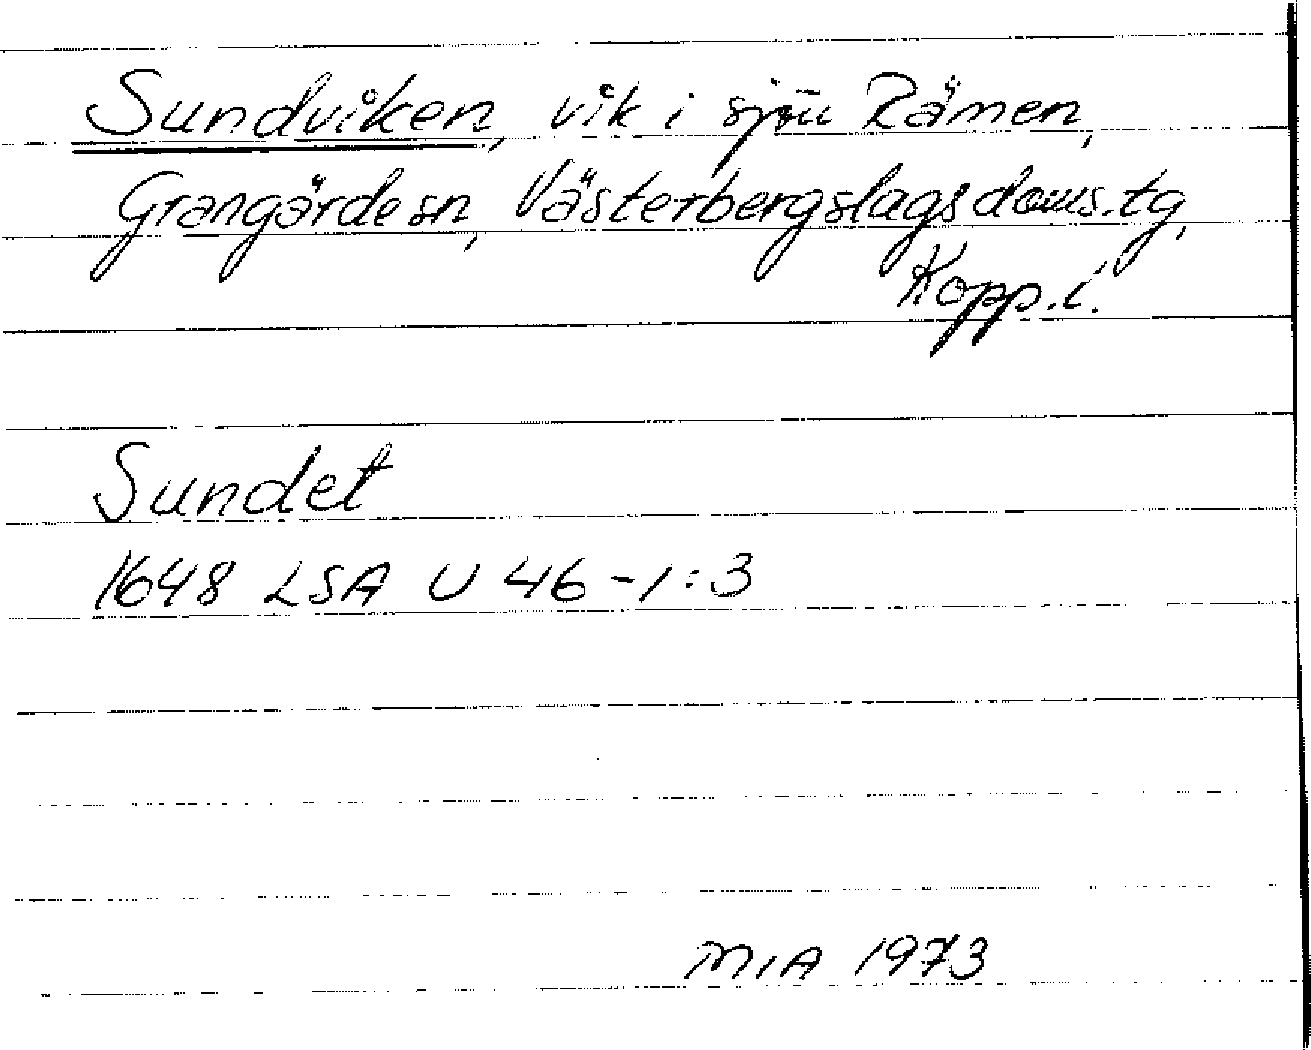 Sundviken, vik i sjön Rämen,
Grangärde sn, Västerbergslags doms. tg,
Kopp. l.
Sundet
1648 LSA U 46-1:3
MIA 1973